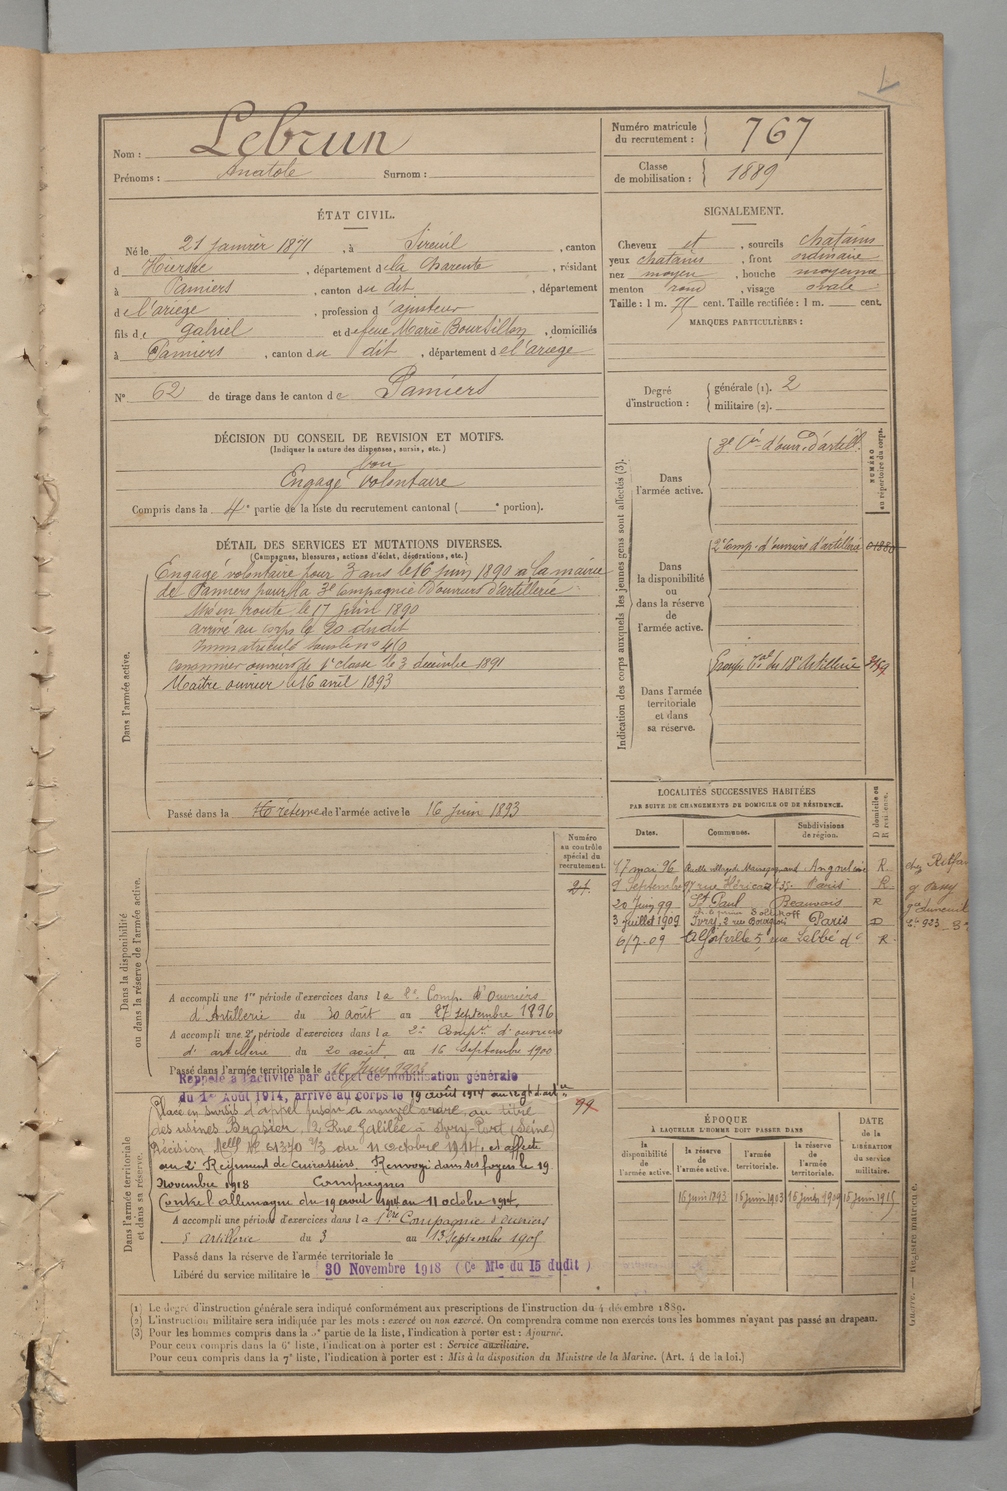 L
Nom : Lebrun
Prénoms : Anatole Surnom :
Numéro matricule du recrutement : 767
Classe de mobilisation : 1889
ÉTAT CIVIL.
Né le 21 janvier 1871, à Sireuil, canton
d Hiersac, département de la Charente, résidant
à Pamiers, canton du dit, département
de l'ariège, profession d'ajusteur
fils de gabriel et de feue Marie Boursillon, domiciliés
à Pamiers, canton du dit, département de l'ariège
N° 62 de tirage dans le canton de Pamiers
SIGNALEMENT.
Cheveux et, sourcils chatains
yeux chatains, front ordinaire
nez moyen, bouche moyenne
menton rond, visage ovale
Taille : 1 m. 71 cent. Taille rectifiée : 1 m. cent.
MARQUES PARTICULIÈRES :
Degré d'instruction : générale (1). 2
militaire (2).
DÉCISION DU CONSEIL DE REVISION ET MOTIFS.
(Indiquer la nature des dispenses, sursis, etc.)
bon
Engagé Volontaire
Compris dans la 4e partie de la liste du recrutement cantonal ( e portion).
DÉTAIL DES SERVICES ET MUTATIONS DIVERSES.
(Campagnes, blessures, actions d'éclat, décorations, etc.)
Dans l'armée active.
Engagé volontaire pour 3 ans le 16 juin 1890 à la mairie
de Pamiers pour la 3e Compagnie d'ouvriers d'artillerie
Mis en route le 17 juin 1890
arrivé au corps le 20 dudit
Immatriculé sous le n° 460
canonnier ouvrier de 1e classe le 3 décembre 1891
Maître ouvrier le 16 avril 1893
Passé dans la réserve de l'armée active le 16 juin 1893
Indication des corps auxquels les jeunes gens sont affectés (3).
NUMÉRO au répertoire du corps.
Dans l'armée active.
3e Cie d'ouv. d'artill.
Dans la disponibilité ou dans la réserve de l'armée active.
2e Comp. d'ouvriers d'artillerie
Dans l'armée territoriale et dans sa réserve.
Groupe Tal du 18e Artillerie
LOCALITÉS SUCCESSIVES HABITÉES
PAR SUITE DE CHANGEMENTS DE DOMICILE OU DE RÉSIDENCE.
Dates. Communes. Subdivisions de région. D domicile ou R résidence.
17 mai 96 Angoulême R.
9 Septembre 97 rue Héricart 55 Paris R
20 Juin 99 St Paul Beauvais R
3 juillet 1909 Ivry, 2 rue Paris D
6/7-09 Alfortville 5, rue Labbé do R.
Numéro au contrôle spécial du recrutement.
21.
99
Dans la disponibilité ou dans la réserve de l'armée active.
A accompli une 1re période d'exercices dans la 2e Comp. d'Ouvriers
d'Artillerie du 30 août au 27 septembre 1896
A accompli une 2e période d'exercices dans la 2e Compie d'ouvriers
d'artillerie du 20 août au 16 Septembre 1900
Passé dans l'armée territoriale le 16 Juin 1903
Rappelé à l'activité par décret de mobilisation générale
du 1er Août 1914, arrivé au corps le 19 août 1914 au 12 gt d'artie
Dans l'armée territoriale et dans sa réserve.
Placé en sursis d'appel jusqu'à nouvel ordre, au titre
des usines Brasier, 2 Rue Galilée à Ivry-Port (Seine)
Décision Melle N° 61370 2/3 du 11 octobre 1914, et affecté
au 2e Régiment de Cuirassiers. Renvoyé dans ses foyers le 19
Novembre 1918 Campagnes
Contre l'allemagne du 19 août 1914 au 11 octobre 1914.
A accompli une période d'exercices dans la 1ère Compagnie d'ouvriers
d'artillerie du 3 au 13 septembre 1905
Passé dans la réserve de l'armée territoriale le
Libéré du service militaire le 30 Novembre 1918 (Ce Mle du 15 dudit)
ÉPOQUE
À LAQUELLE L'HOMME DOIT PASSER DANS
la disponibilité de l'armée active. la réserve de l'armée active. l'armée territoriale. la réserve de l'armée territoriale. DATE de la LIBÉRATION du service militaire.
16 juin 1893 16 juin 1903 16 juin 1909 16 juin 1915
(1) Le degré d'instruction générale sera indiqué conformément aux prescriptions de l'instruction du 4 décembre 1889.
(2) L'instruction militaire sera indiquée par les mots : exercé ou non exercé. On comprendra comme non exercés tous les hommes n'ayant pas passé au drapeau.
(3) Pour les hommes compris dans la 5e partie de la liste, l'indication à porter est : Ajourné.
Pour ceux compris dans la 6e liste, l'indication à porter est : Service auxiliaire.
Pour ceux compris dans la 7e liste, l'indication à porter est : Mis à la disposition du Ministre de la Marine. (Art. 4 de la loi.)
Guerre. — Registre matricule.